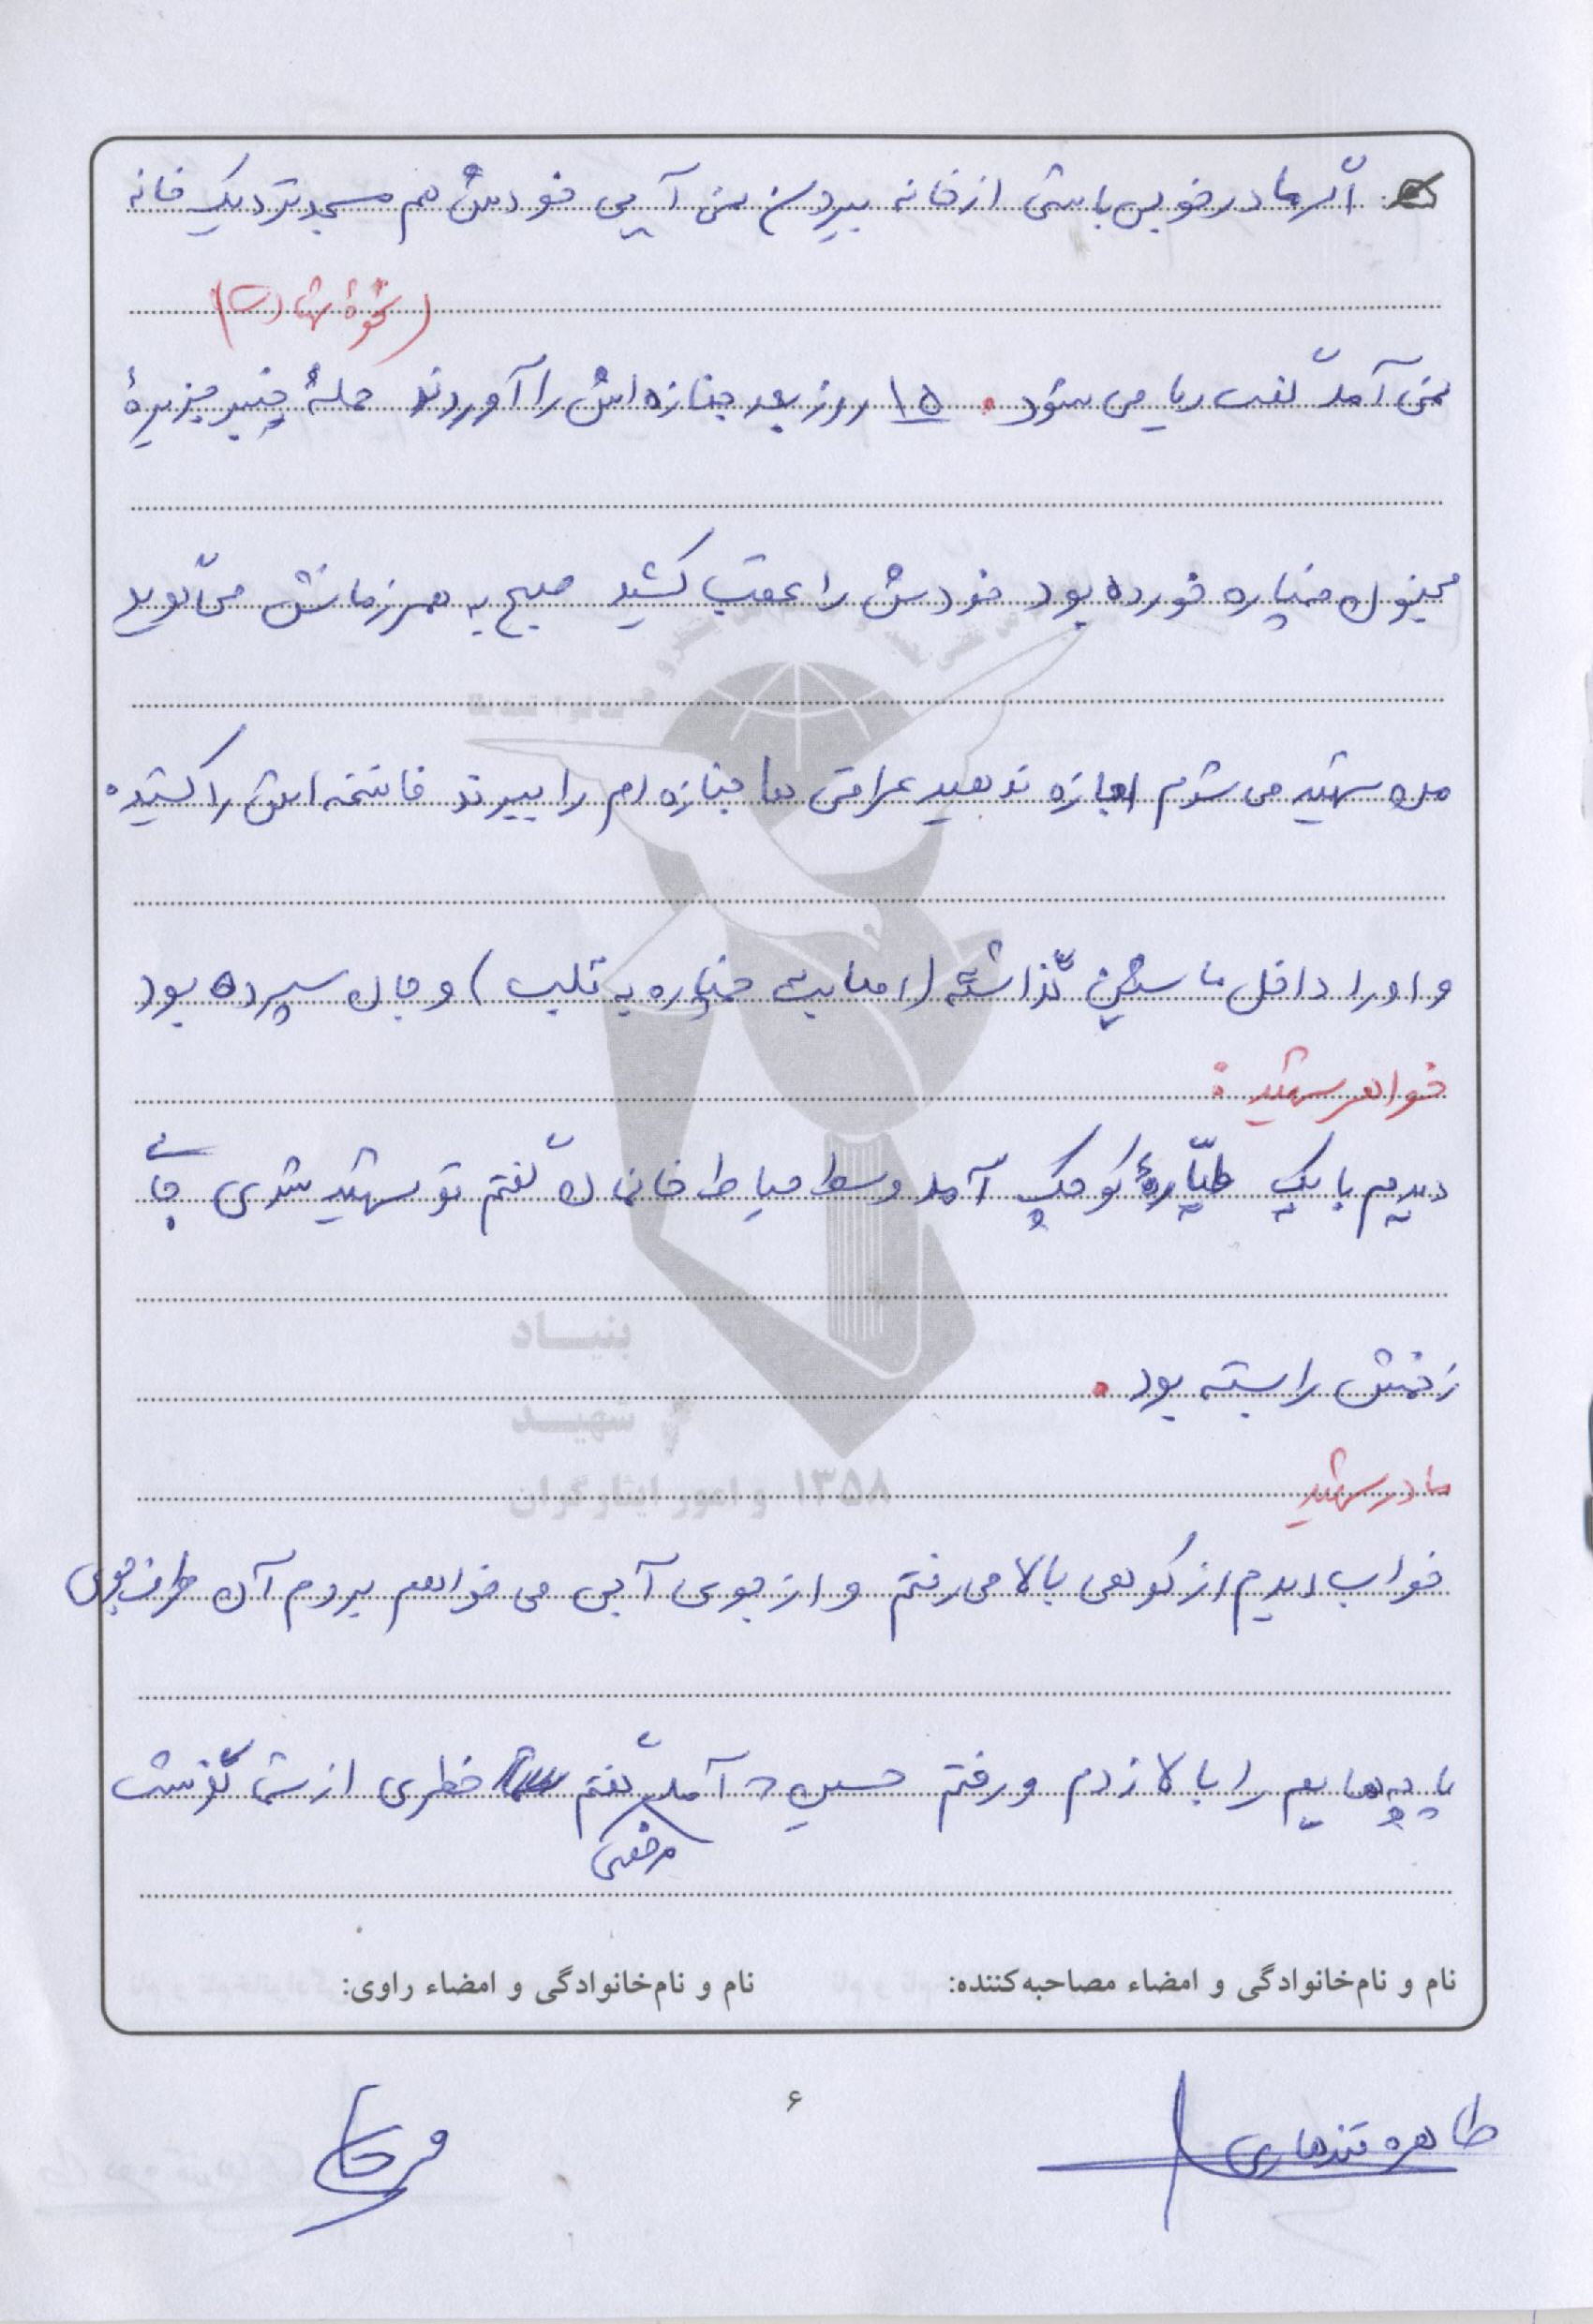 اگر مادر خوبی باشی از خانه بیرون نمی آیی خودش هم مسجد نزدیک خانه
(نحوهٔ شهادت)
نمی آمد گفت ریا می شود . ۱۵ روز بعد جنازه اش را آوردند حملهٔ خیبر جزیرهٔ
مجنون خمپاره خورده بود خودش را عقب کشید صبح به همرزمانش می گوید
من شهید می شوم اجازه ندهید عراقی ها جنازه ام را ببرند فاتحه اش را کشیده
و او را داخل ماشین گذاشته (اصابت خمپاره به قلب) و جان سپرده بود
خواهر شهید :
دیدم با یک طیّارهٔ کوچک آمد وسط حیاط خانمان گفتم تو شهید شدی جای
زخمش را بسته بود .
مادر شهید
خواب دیدم از کوهی بالا می رفتم و از جوی آبی می خواهم بروم آن طرف جوی
پاچه هایم را بالا زدم و رفتم حسین آمد گفتم خطری از شما گذشت
مرخصی
نام و نام‌خانوادگی و امضاء مصاحبه‌کننده:
نام و نام‌خانوادگی و امضاء راوی:
طاهره قندهاری
۶
بنیاد
شهید
و امور ایثارگران
۱۳۵۸